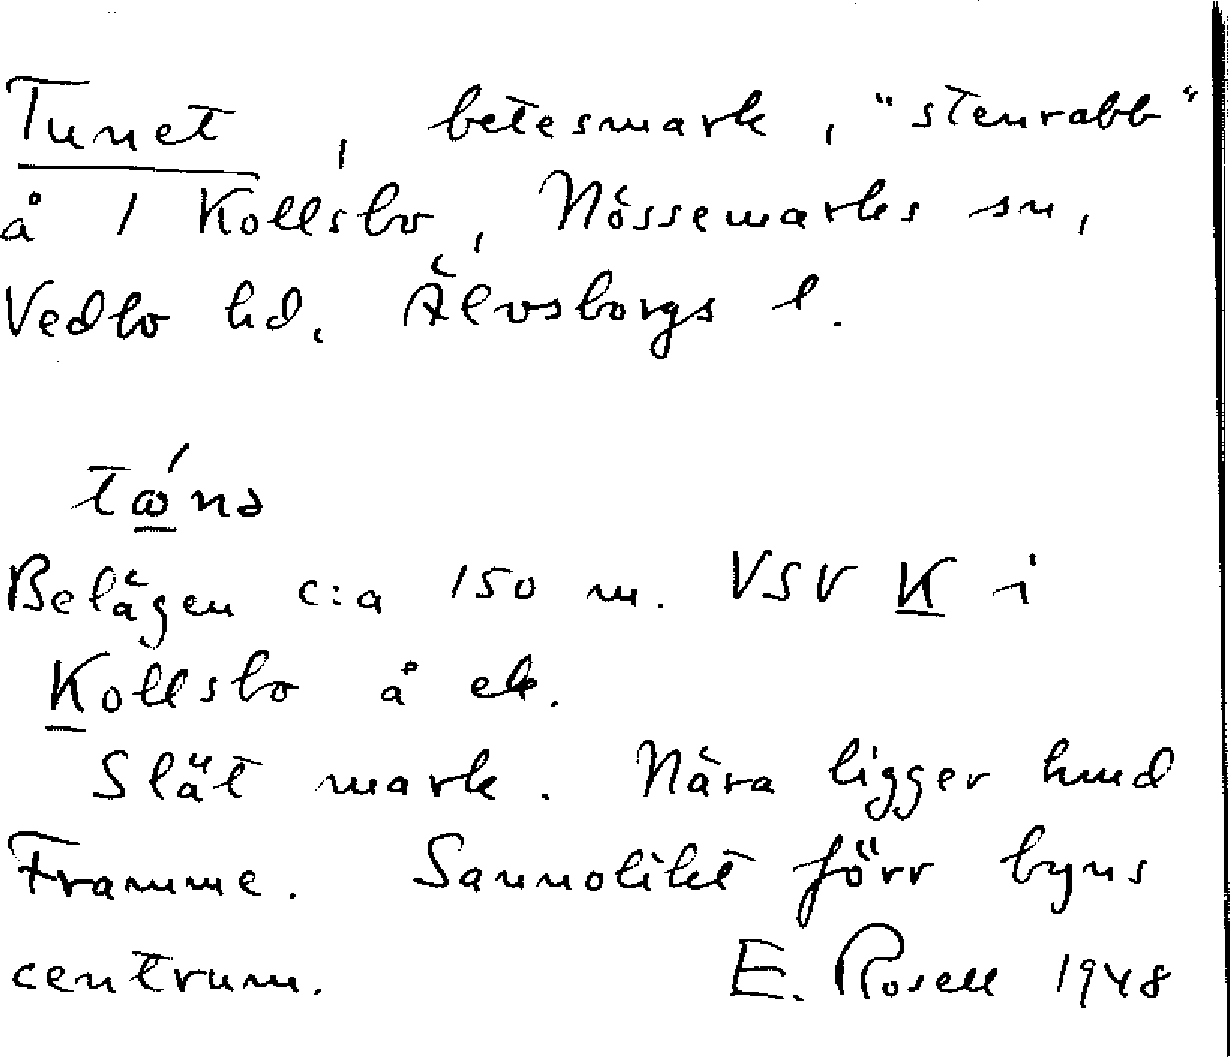 Tunet, betesmark, "stenrabb"
å 1 Kollsbo, Nössemarks sn,
Vedbo hd. Älvsborgs l.
tώnə
Belägen c:a 150 m. VSV K i
Kollsbo å ek.
Slät mark. Nära ligger hmd
Framme. Sannolikt förr byns
centrum. E. Rosell 1948